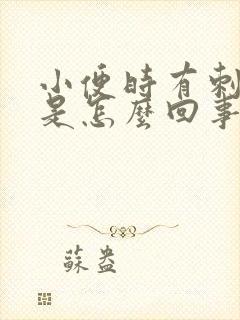 小便時有刺
是怎麼回事
蘇盎